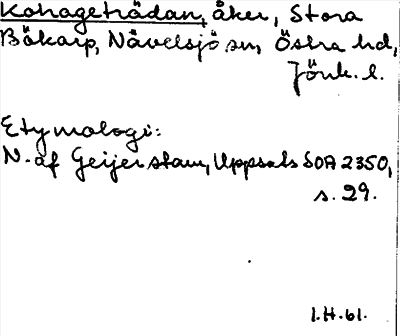 Kohageträdan, åker, Stora
Bäkarp, Nävelsjö sn, Östra hd,
Jönk. l.
Etymologi:
N. af Geijerstam, Uppsats SOA 2350,
s. 29.
I.H.61.